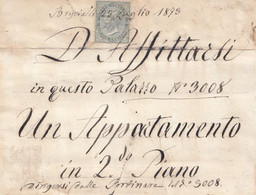 25 Luglio 1893
D'Affittarsi
in questo Palazzo N° 3008
Un Appartamento
in 2.do Piano
dirigersi dalla Portinara al N° 3008.